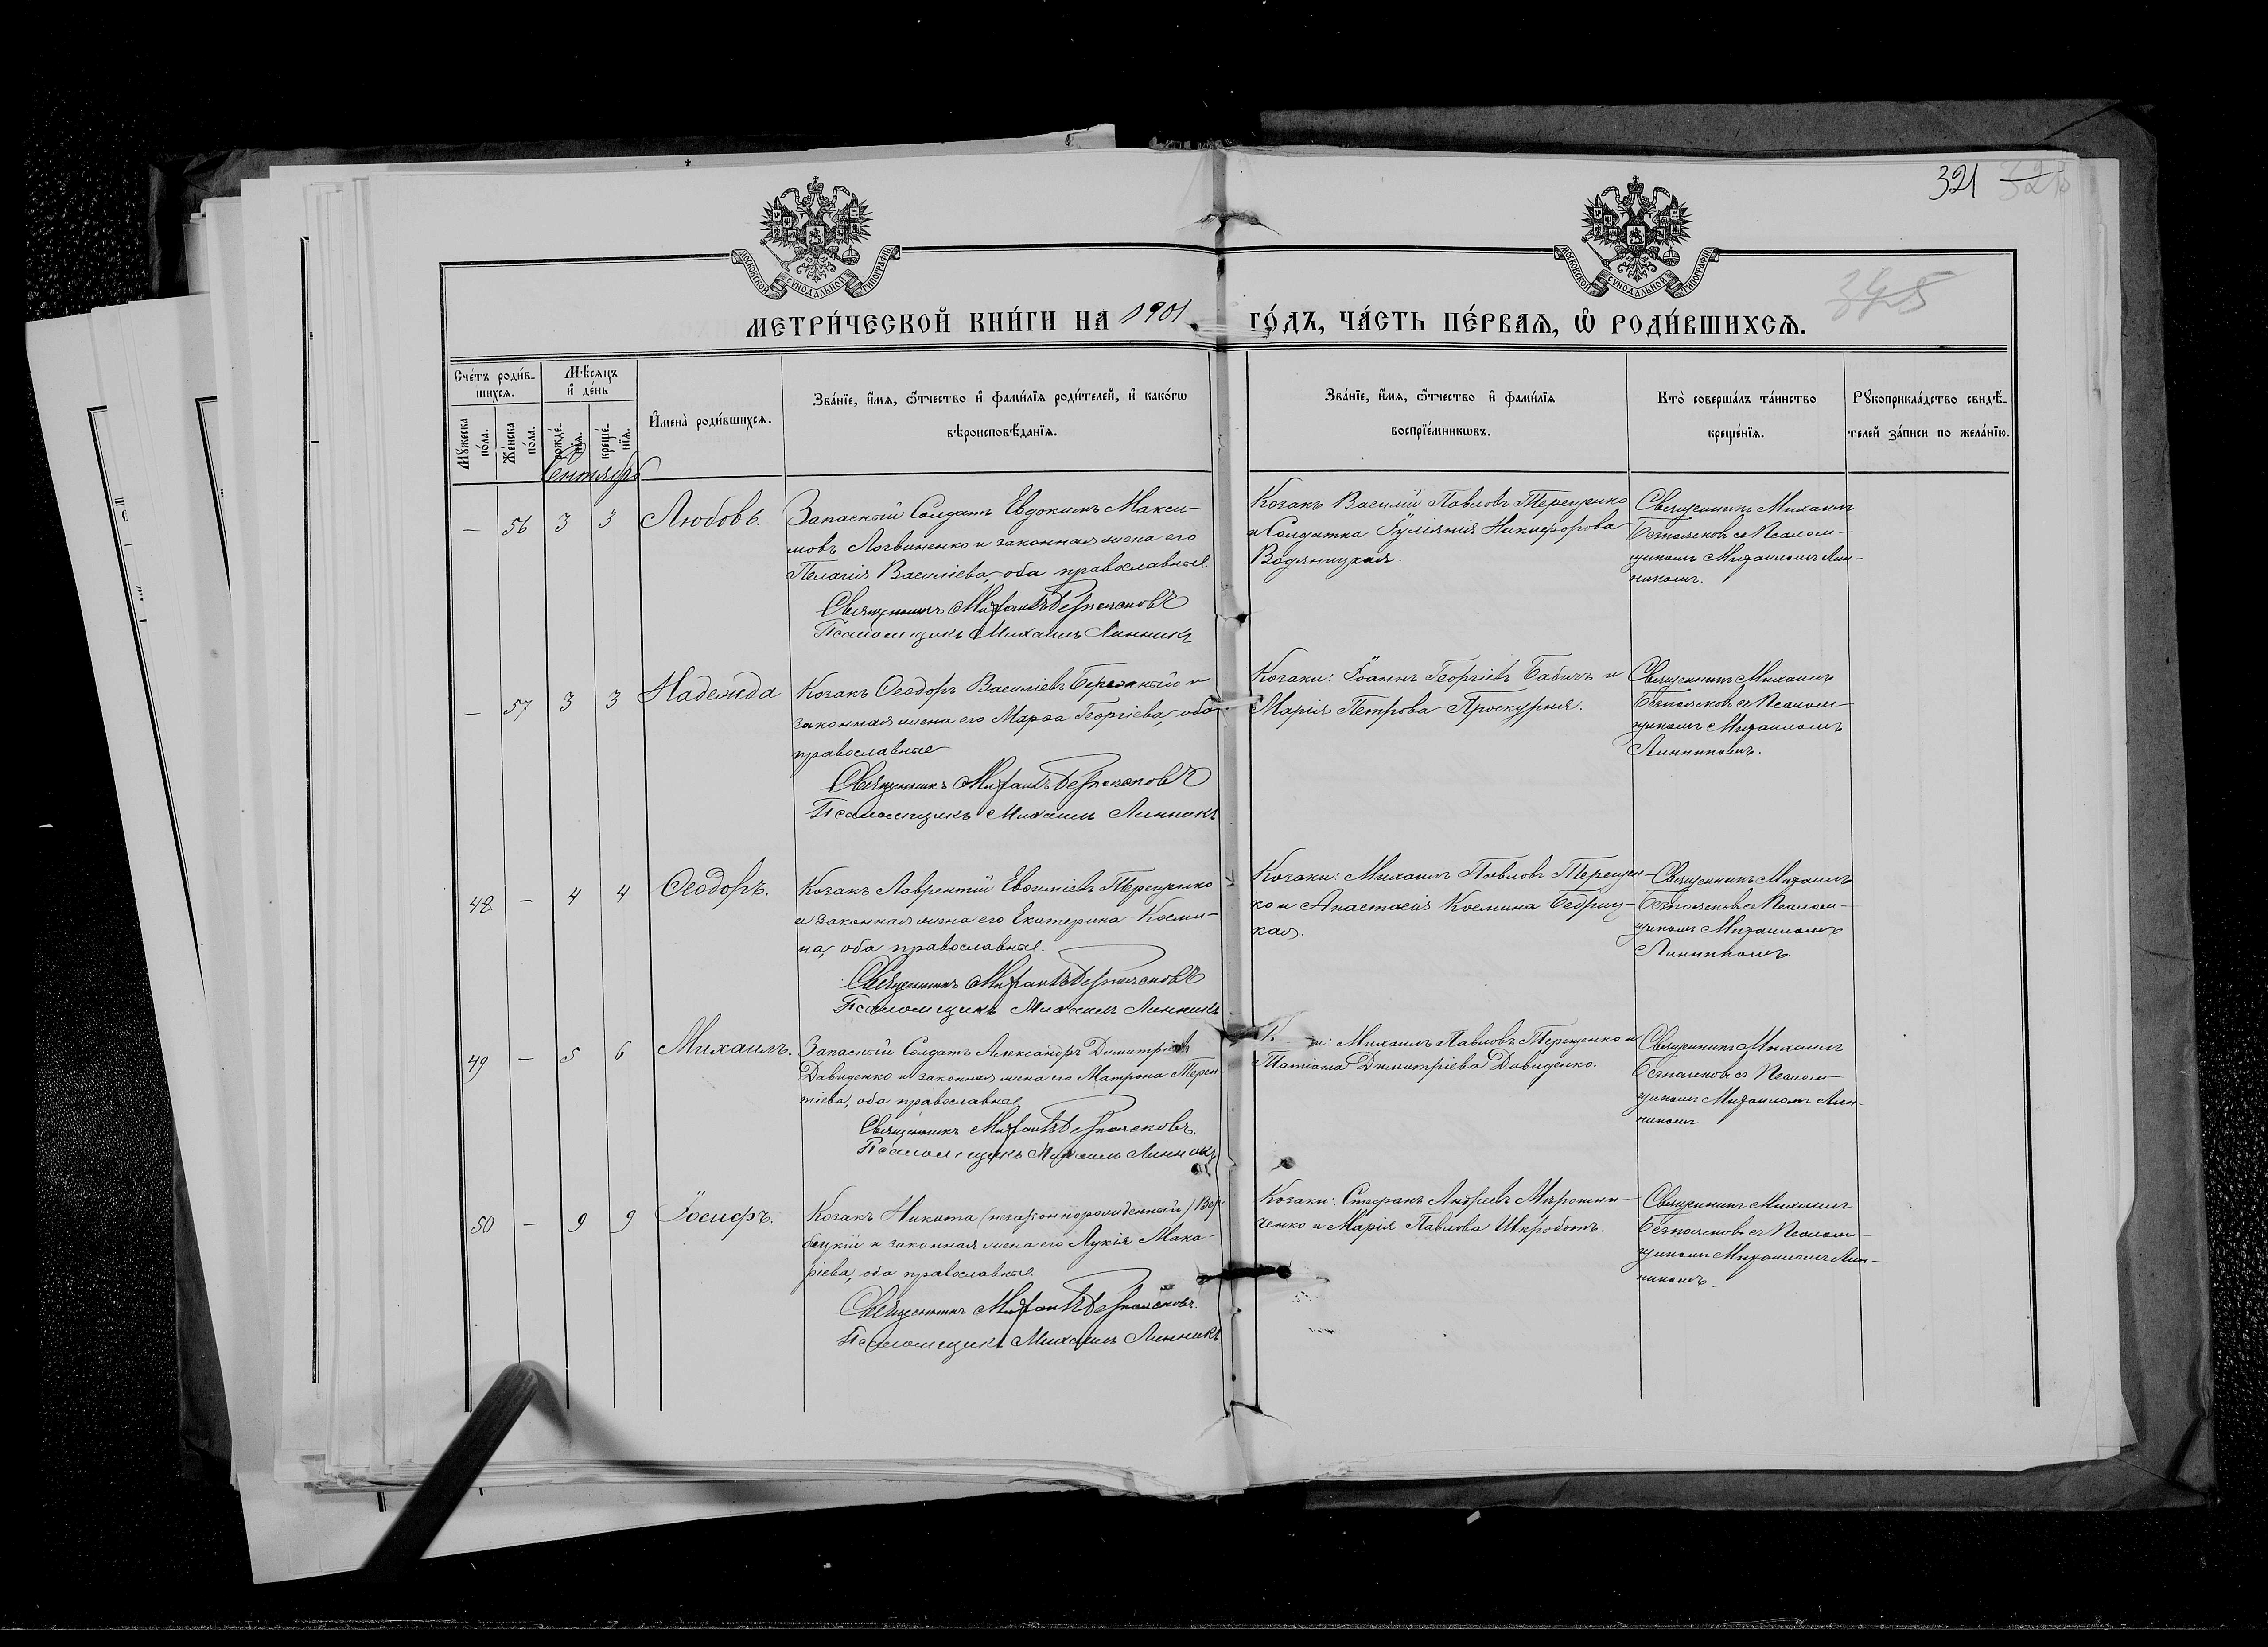 321
МОСКОВСКОЙ СѴНОДАЛЬНОЙ ТИПОГРАФІИ
МОСКОВСКОЙ СѴНОДАЛЬНОЙ ТИПОГРАФІИ
МЕТРИ́ЧЕСКОЙ КНИ́ГИ НА 1901 ГО́ДЪ, ЧА́СТЬ ПЕ́РВАѦ, Ѡ҆ РОДИ́ВШИХСѦ.
Сче́тъ роди́в-
шихсѧ.
Мѣ́сѧцъ
и҆ де́нь
Мꙋ́жеска
по́ла.
Же́нска
по́ла.
рожде́-
нїѧ.
креще́-
нїѧ.
И҆мена̀ роди́вшихсѧ.
Зва́нїе, и҆́мѧ, ѻ҆́тчество и҆ фами́лїѧ роди́телей, и҆ како́гѡ
вѣроисповѣ́данїѧ.
Зва́нїе, и҆́мѧ, ѻ҆́тчество и҆ фами́лїѧ
воспрїе́мникѡвъ.
Кто̀ соверша́лъ та́инство
креще́нїѧ.
Рꙋкоприкла́дство свидѣ́-
телей за́писи по жела́нїю.
Сентябрь
— 56 3 3 Любовь.
Запасный Солдатъ Евдокимъ Макси-
мовъ Логвиненко и законная жена его
Пелагія Василіева, оба православные.
Священникъ Михаилъ Безпоясковъ
Псаломщикъ Михаилъ Линникъ
Козакъ Василій Павловъ Терещенко
и Солдатка Іуліянія Никифорова
Водяницкая.
Священникъ Михаилъ
Безпоясковъ съ Псалом-
щикомъ Михаиломъ Лин-
никомъ.
— 57 3 3 Надежда
Козакъ Ѳеодоръ Василіевъ Бережный и
законная жена его Марѳа Георгіева, оба
православные
Священникъ Михаилъ Безпоясковъ
Псаломщикъ Михаилъ Линникъ
Козаки: Іоаннъ Георгіевъ Бабичъ и
Марія Петрова Проскурня.
Священникъ Михаилъ
Безпоясковъ съ Псалом-
щикомъ Михаиломъ
Линникомъ.
48 — 4 4 Ѳеодоръ.
Козакъ Лаврентій Евѳиміевъ Терещенко
и законная жена его Екатерина Косми-
на, оба православные.
Священникъ Михаилъ Безпоясковъ
Псаломщикъ Михаилъ Линникъ
Козаки: Михаилъ Павловъ Терещен-
ко и Анастасія Космина Бедриц-
кая.
Священникъ Михаилъ
Безпоясковъ съ Псалом-
щикомъ Михаиломъ
Линникомъ
49 — 5 6 Михаилъ.
Запасный Солдатъ Александръ Димитріевъ
Давиденко и законная жена его Матрона Терен-
тіева, оба православные
Священникъ Михаилъ Безпоясковъ.
Псаломщикъ Михаилъ Линникъ
Михаилъ Павловъ Терещенко и
Татіана Димитріева Давиденко.
Священникъ Михаилъ
Безпоясковъ съ Псалом-
щикомъ Михаиломъ Лин-
никомъ
50 — 9 9 Іосифъ.
Козакъ Никита (незаконнорожденный) Вер-
бецкій и законная жена его Лукія Мака-
ріева, оба православные.
Священникъ Михаилъ Безпоясковъ.
Псаломщикъ Михаилъ Линникъ
Козаки: Стефанъ Андреевъ Мирошни-
ченко и Марія Павлова Шкроботъ.
Священникъ Михаилъ
Безпоясковъ съ Псалом-
щикомъ Михаиломъ Лин-
никомъ.